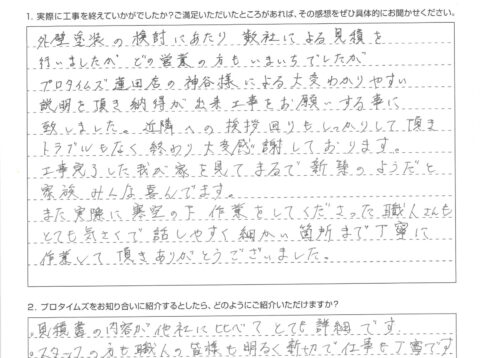 1. 実際に工事を終えていかがでしたか？ご満足いただいたところがあれば、その感想をぜひ具体的にお聞かせください。
外壁塗装の検討にあたり 数社による見積を
行いましたが どの営業の方もいまいちでしたが
プロタイムズ蓮田店の神谷様による大変わかりやすい
説明を頂き納得が出来工事をお願いする事に
致しました。近隣への挨拶回りもしっかりして頂き
トラブルもなく終わり大変感謝しております。
工事完了した我が家を見てまるで新築のようだと
家族みんな喜んでます。
また実際に寒空の下作業をしてくださった職人さんも
とても気さくで話しやすく細かい箇所まで丁寧に
作業して頂きありがとうございました。
2. プロタイムズをお知り合いに紹介するとしたら、どのようにご紹介いただけますか？
・見積書の内容が他社に比べてとても詳細です
・スタッフの方も職人の皆様も明るく親切で仕事も丁寧です